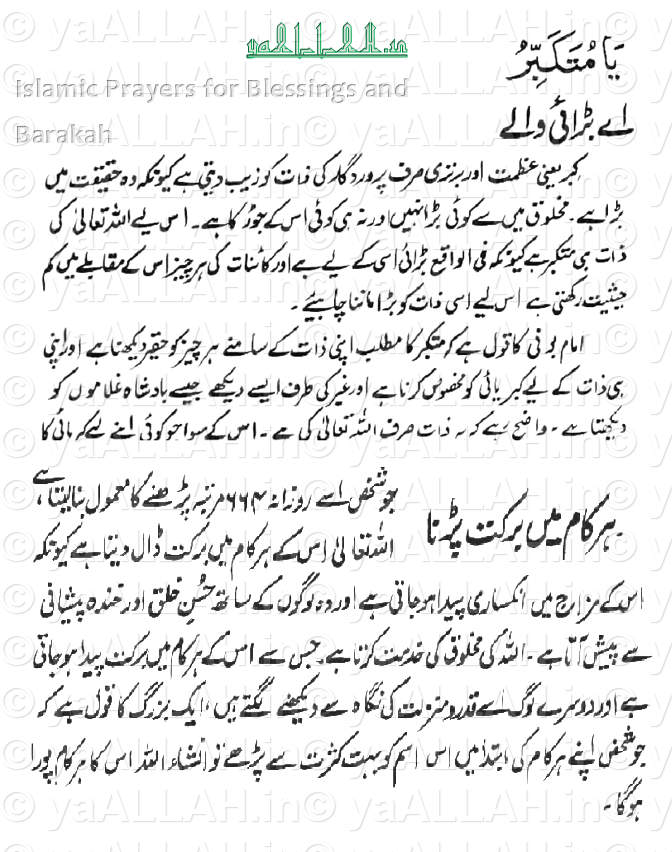 yaALLAH.in
Islamic Prayers for Blessings and
Barakah
یَا مُتَکَبِّرُ
اے بڑائی والے
کبر یعنی عظمت اور برتری صرف پروردگار کی ذات کو زیب دیتی ہے کیونکہ وہ حقیقت میں
بڑا ہے۔ مخلوق میں سے کوئی بڑا نہیں اور نہ ہی کوئی اس کے جوڑ کا ہے۔ اس لیے اللہ تعالیٰ کی
ذات ہی متکبر ہے کیونکہ فی الواقع بڑائی اسی کے لیے ہے اور کائنات کی ہر چیز اس کے مقابلے میں کم
حیثیت رکھتی ہے اس لیے اسی ذات کو بڑا ماننا چاہیئے۔
امام بونی کا قول ہے کہ متکبر کا مطلب اپنی ذات کے سامنے ہر چیز کو حقیر دیکھنا ہے اور اپنی
ہی ذات کے لیے کبریائی کو مخصوص کرنا ہے اور غیر کی طرف ایسے دیکھے جیسے بادشاہ غلاموں کو
دیکھتا ہے۔ واضح رہے کہ یہ ذات صرف اللہ تعالیٰ کی ہے۔ اس کے سوا جو کوئی اپنے لیے کبریائی کا
ہر کام میں برکت پڑنا
جو شخص اسے روزانہ ۶۶۴ مرتبہ پڑھنے کا معمول بنا لیتا ہے،
اللہ تعالیٰ اس کے ہر کام میں برکت ڈال دیتا ہے کیونکہ
اس کے مزاج میں انکساری پیدا ہو جاتی ہے اور وہ لوگوں کے ساتھ حُسنِ خلق اور خندہ پیشانی
سے پیش آتا ہے۔ اللہ کی مخلوق کی خدمت کرتا ہے۔ جس سے اس کے ہر کام میں برکت پیدا ہو جاتی
ہے اور دوسرے لوگ اسے قدر و منزلت کی نگاہ سے دیکھنے لگتے ہیں، ایک بزرگ کا قول ہے کہ
جو شخص اپنے ہر کام کی ابتدا میں اس اسم کو بہت کثرت سے پڑھے تو انشاء اللہ اس کا ہر کام پورا
ہوگا۔
© yaALLAH.in